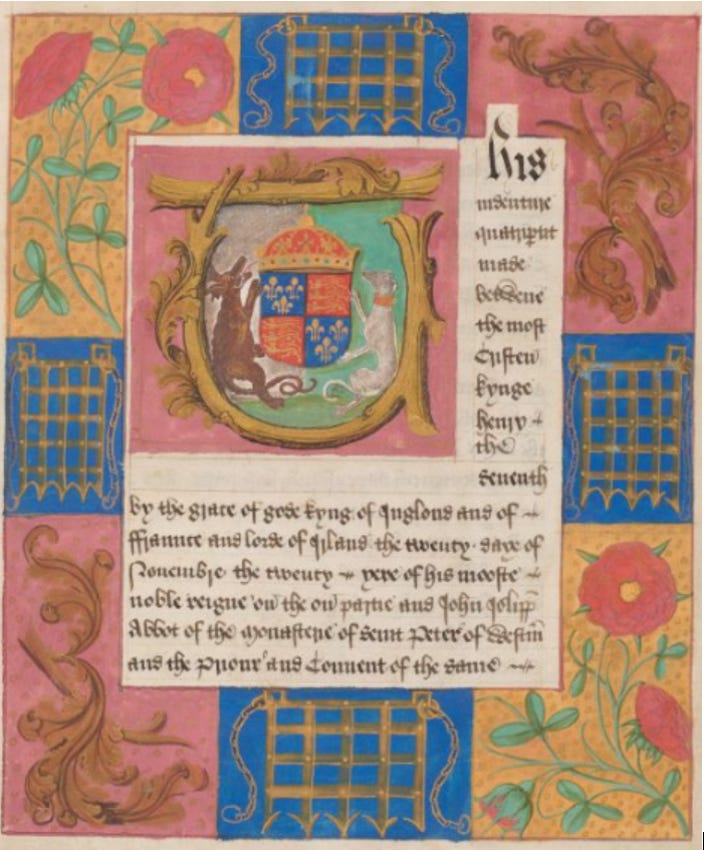 This
indenture
quatriptit
made
betwene
the most
Cristen
kynge
henry
the
Seuenth
by the grace of gode kyng of Inglond and of
ffraunce and lorde of Irland the twenty daye of
Nouembre the twenty yere of his mooste
noble reigne on the on partie and John Islipp
Abbot of the Monasterye of Seint Peter of Westm
and the Priour and Couuent of the same